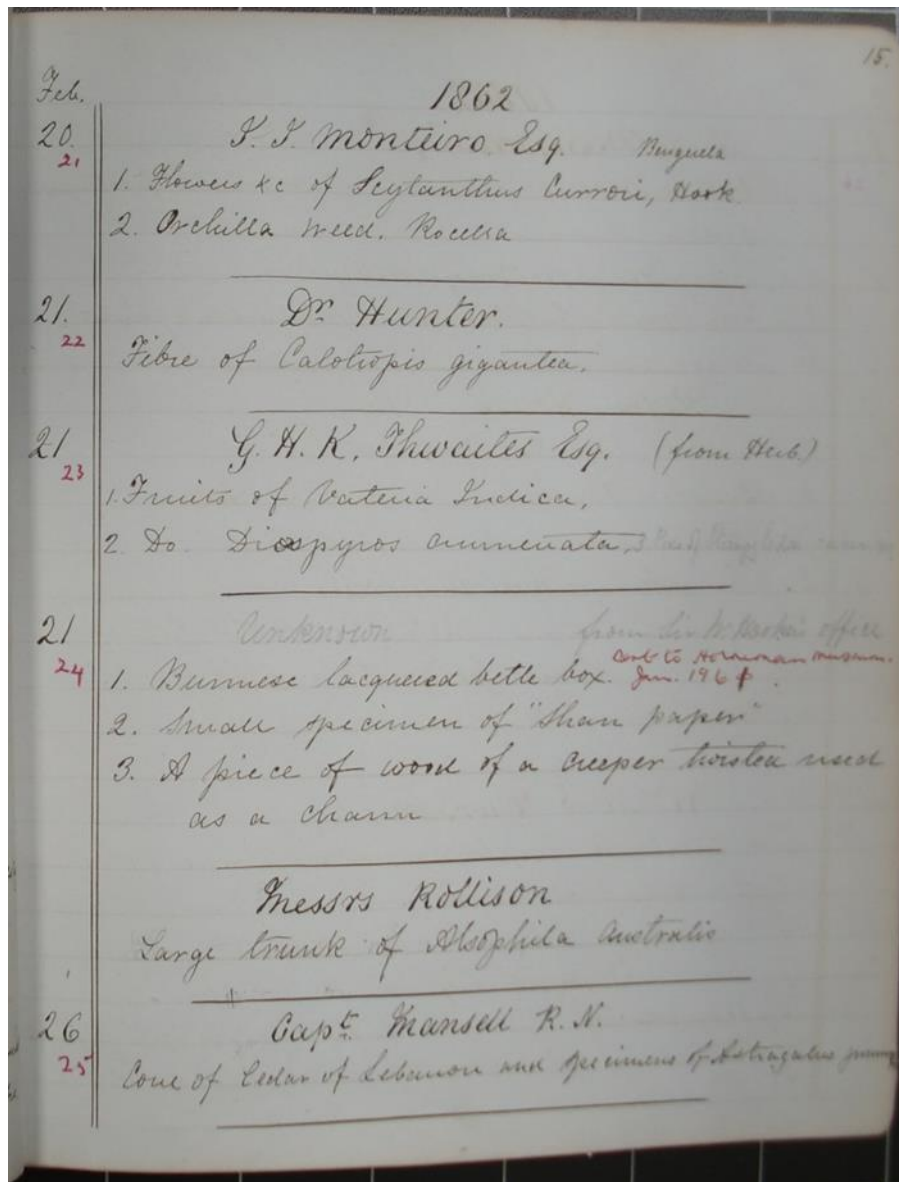 15.
Feb.
1862
20.
21
J. J. Monteiro Esq. Benguela
1. Flowers &c of Scytanthus Currori, Hook
2. Orchilla weed. Rocella
21.
22
Dr. Hunter.
Fibre of Calotropis gigantea.
21
23
G. H. K. Thwaites Esq. (from Herb.)
1. Fruits of Vateria Indica,
2. Do. Diospyros
21
24
Unknown from Sir W. Hooker's office
1. Burmese lacquered betle box. to Horniman Museum.
Jan. 196
2. Small specimen of "Shan paper"
3. A piece of wood of a creeper twisted used
as a charm
Messrs Rollison
Large trunk of Alsophila Australis
26
25
Capt. Mansell R. N.
Cone of Cedar of Lebanon and specimens of Astragalus